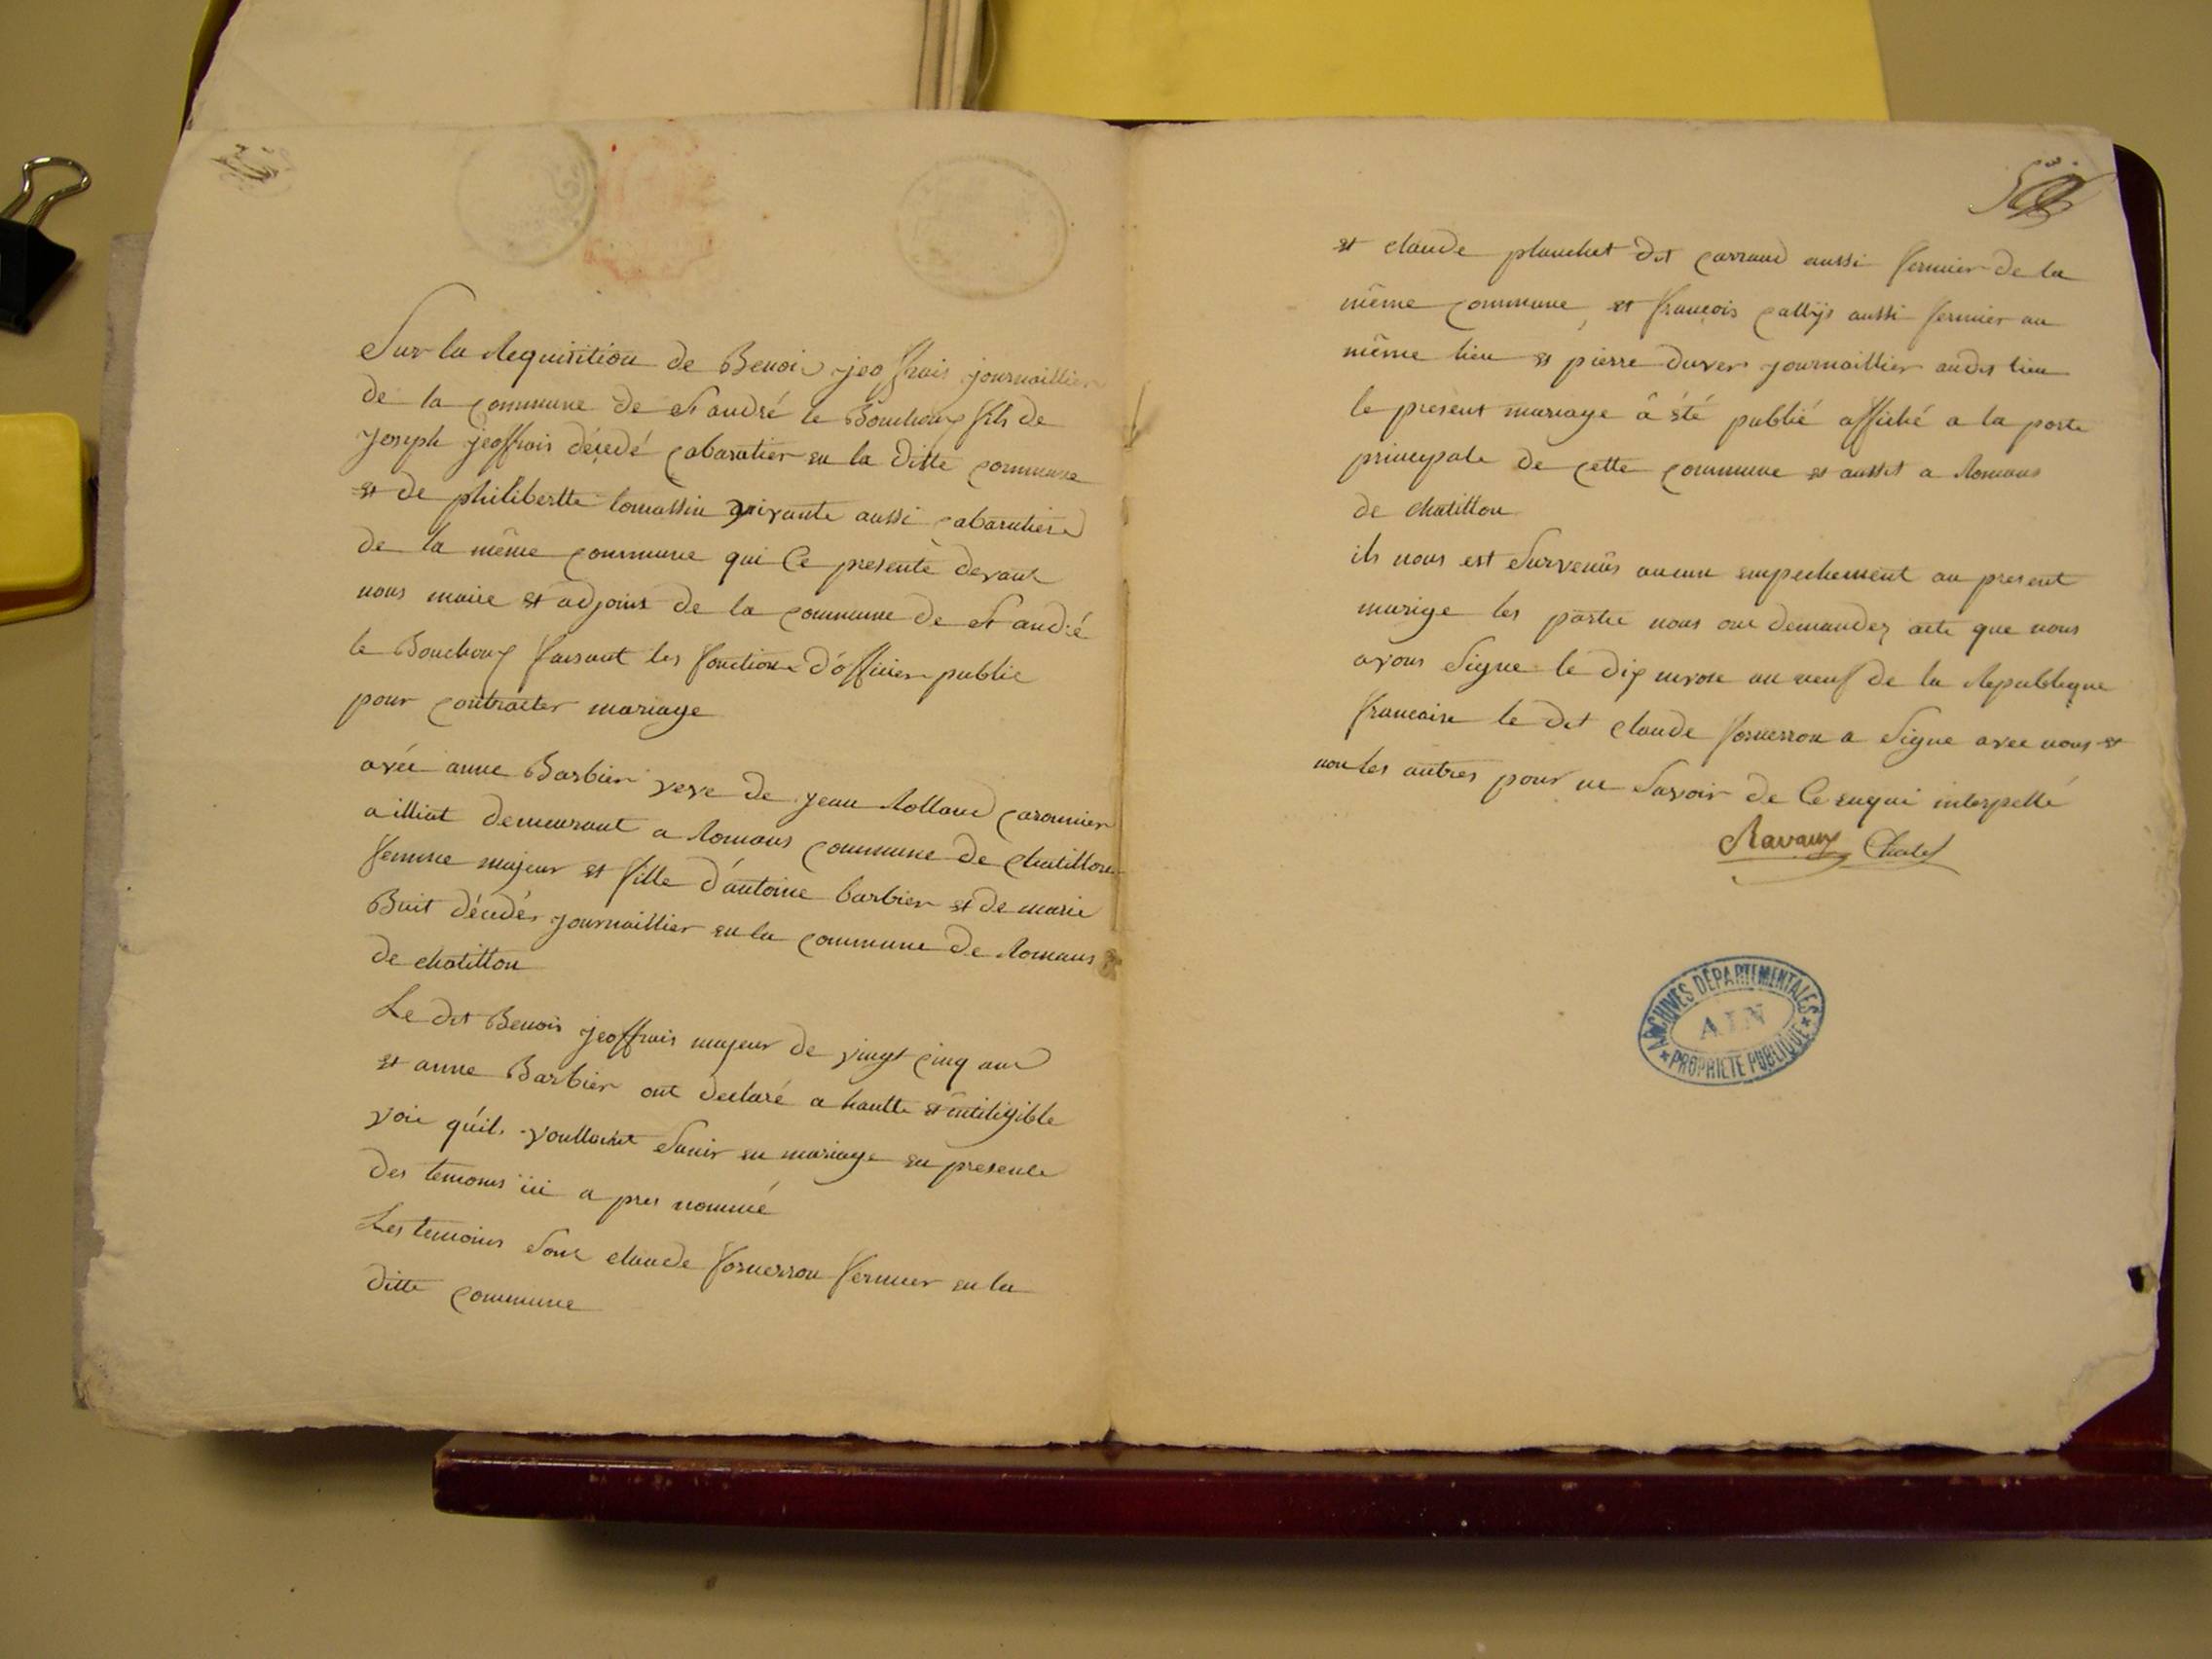 Sur la Requisition de Benoi jeoffrais journaillier
de la commune de St andré le Bouchoux fils de
joseph jeoffrais décedé cabaratier en la ditte commune
et de philibertte tomassin vivante aussi cabaratiere
de la même commune qui Ce presente devant
nous maire et adjoint de la commune de St andré
le Bouchoux faisant les fonctions d'officier public
pour contracter mariage
avée anne Barbier veve de jean Rolland
a illiat demeurant a Romans commune de chatillon
femme majeur et fille d'antoine barbier et de marie
Buit décedés journaillier en la commune de Romans
de chatillon
Le dit Benois jeoffrais majeur de vingt cinq ans
et anne Barbier ont declaré a hautte et intiligible
voie quils voulloint Sunir en mariage en presence
des temoins ici a pres nommé
Les temoins Sont claude fornerron fermier en la
ditte commune
et claude planchet dit carraud aussi fermier de la
même commune et françois aussi fermier au
même lieu et pierre duver journaillier audit lieu
le present mariage â été publié affiché a la porte
principale de cette commune et aussit a Romans
de chatillon
ils nous est Survenûs aucun empechement au present
marige les partie nous ont demandez acte que nous
avons Signe le dix nivose an neuf de la Republique
francaise le dit claude fornerron a Signe avec nous et
non les autres pour ne Savoir de Ce enqui interpellé
Ravaux Chalet
ARCHIVES DÉPARTEMENTALES
AIN
PROPRIÉTÉ PUBLIQUE